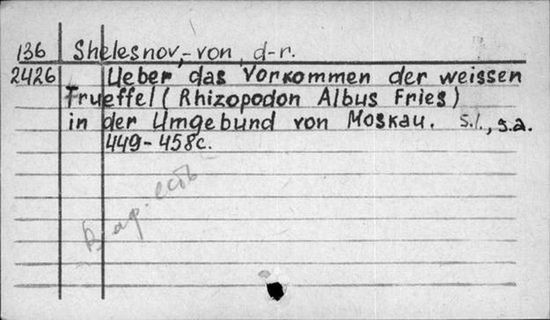 136 Shelesnov,-von, d-r.
2426 Ueber das Vorkommen der weissen
Trueffel (Rhizopodon Albus Fries)
in der Umgebund von Moskau. s.l., s.a.
449-458c.
есть